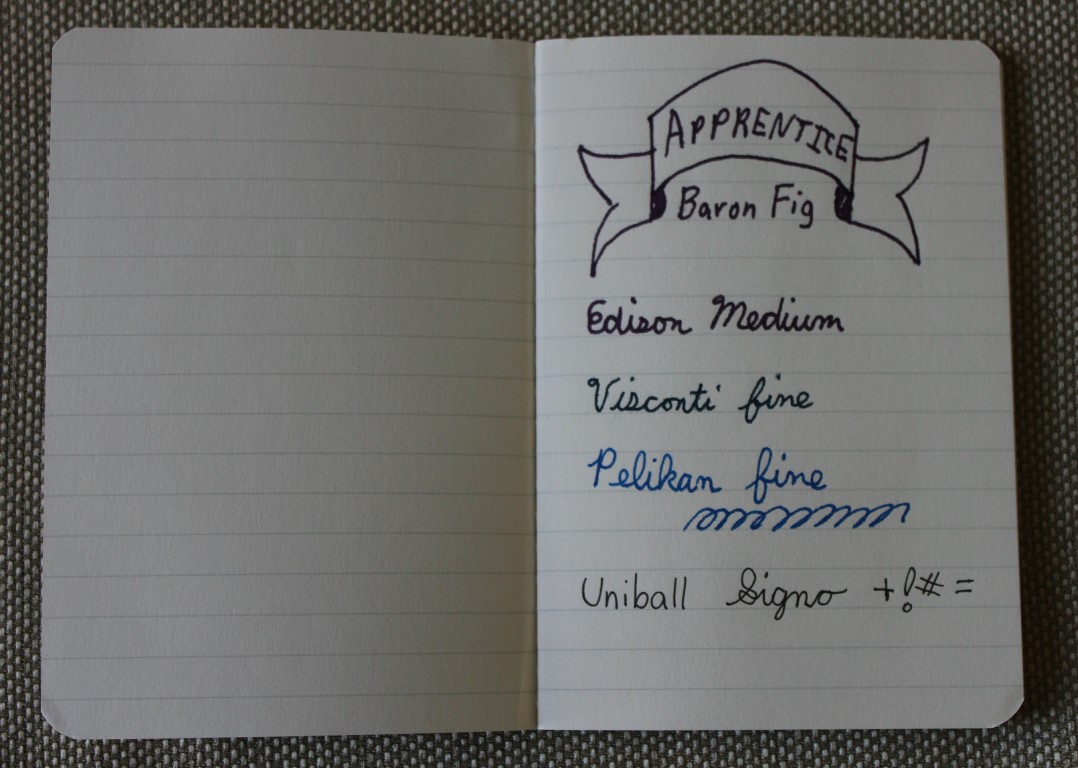 APPRENTICE
Baron Fig
Edison Medium
Visconti fine
Pelikan fine
Uniball Signo +!#=